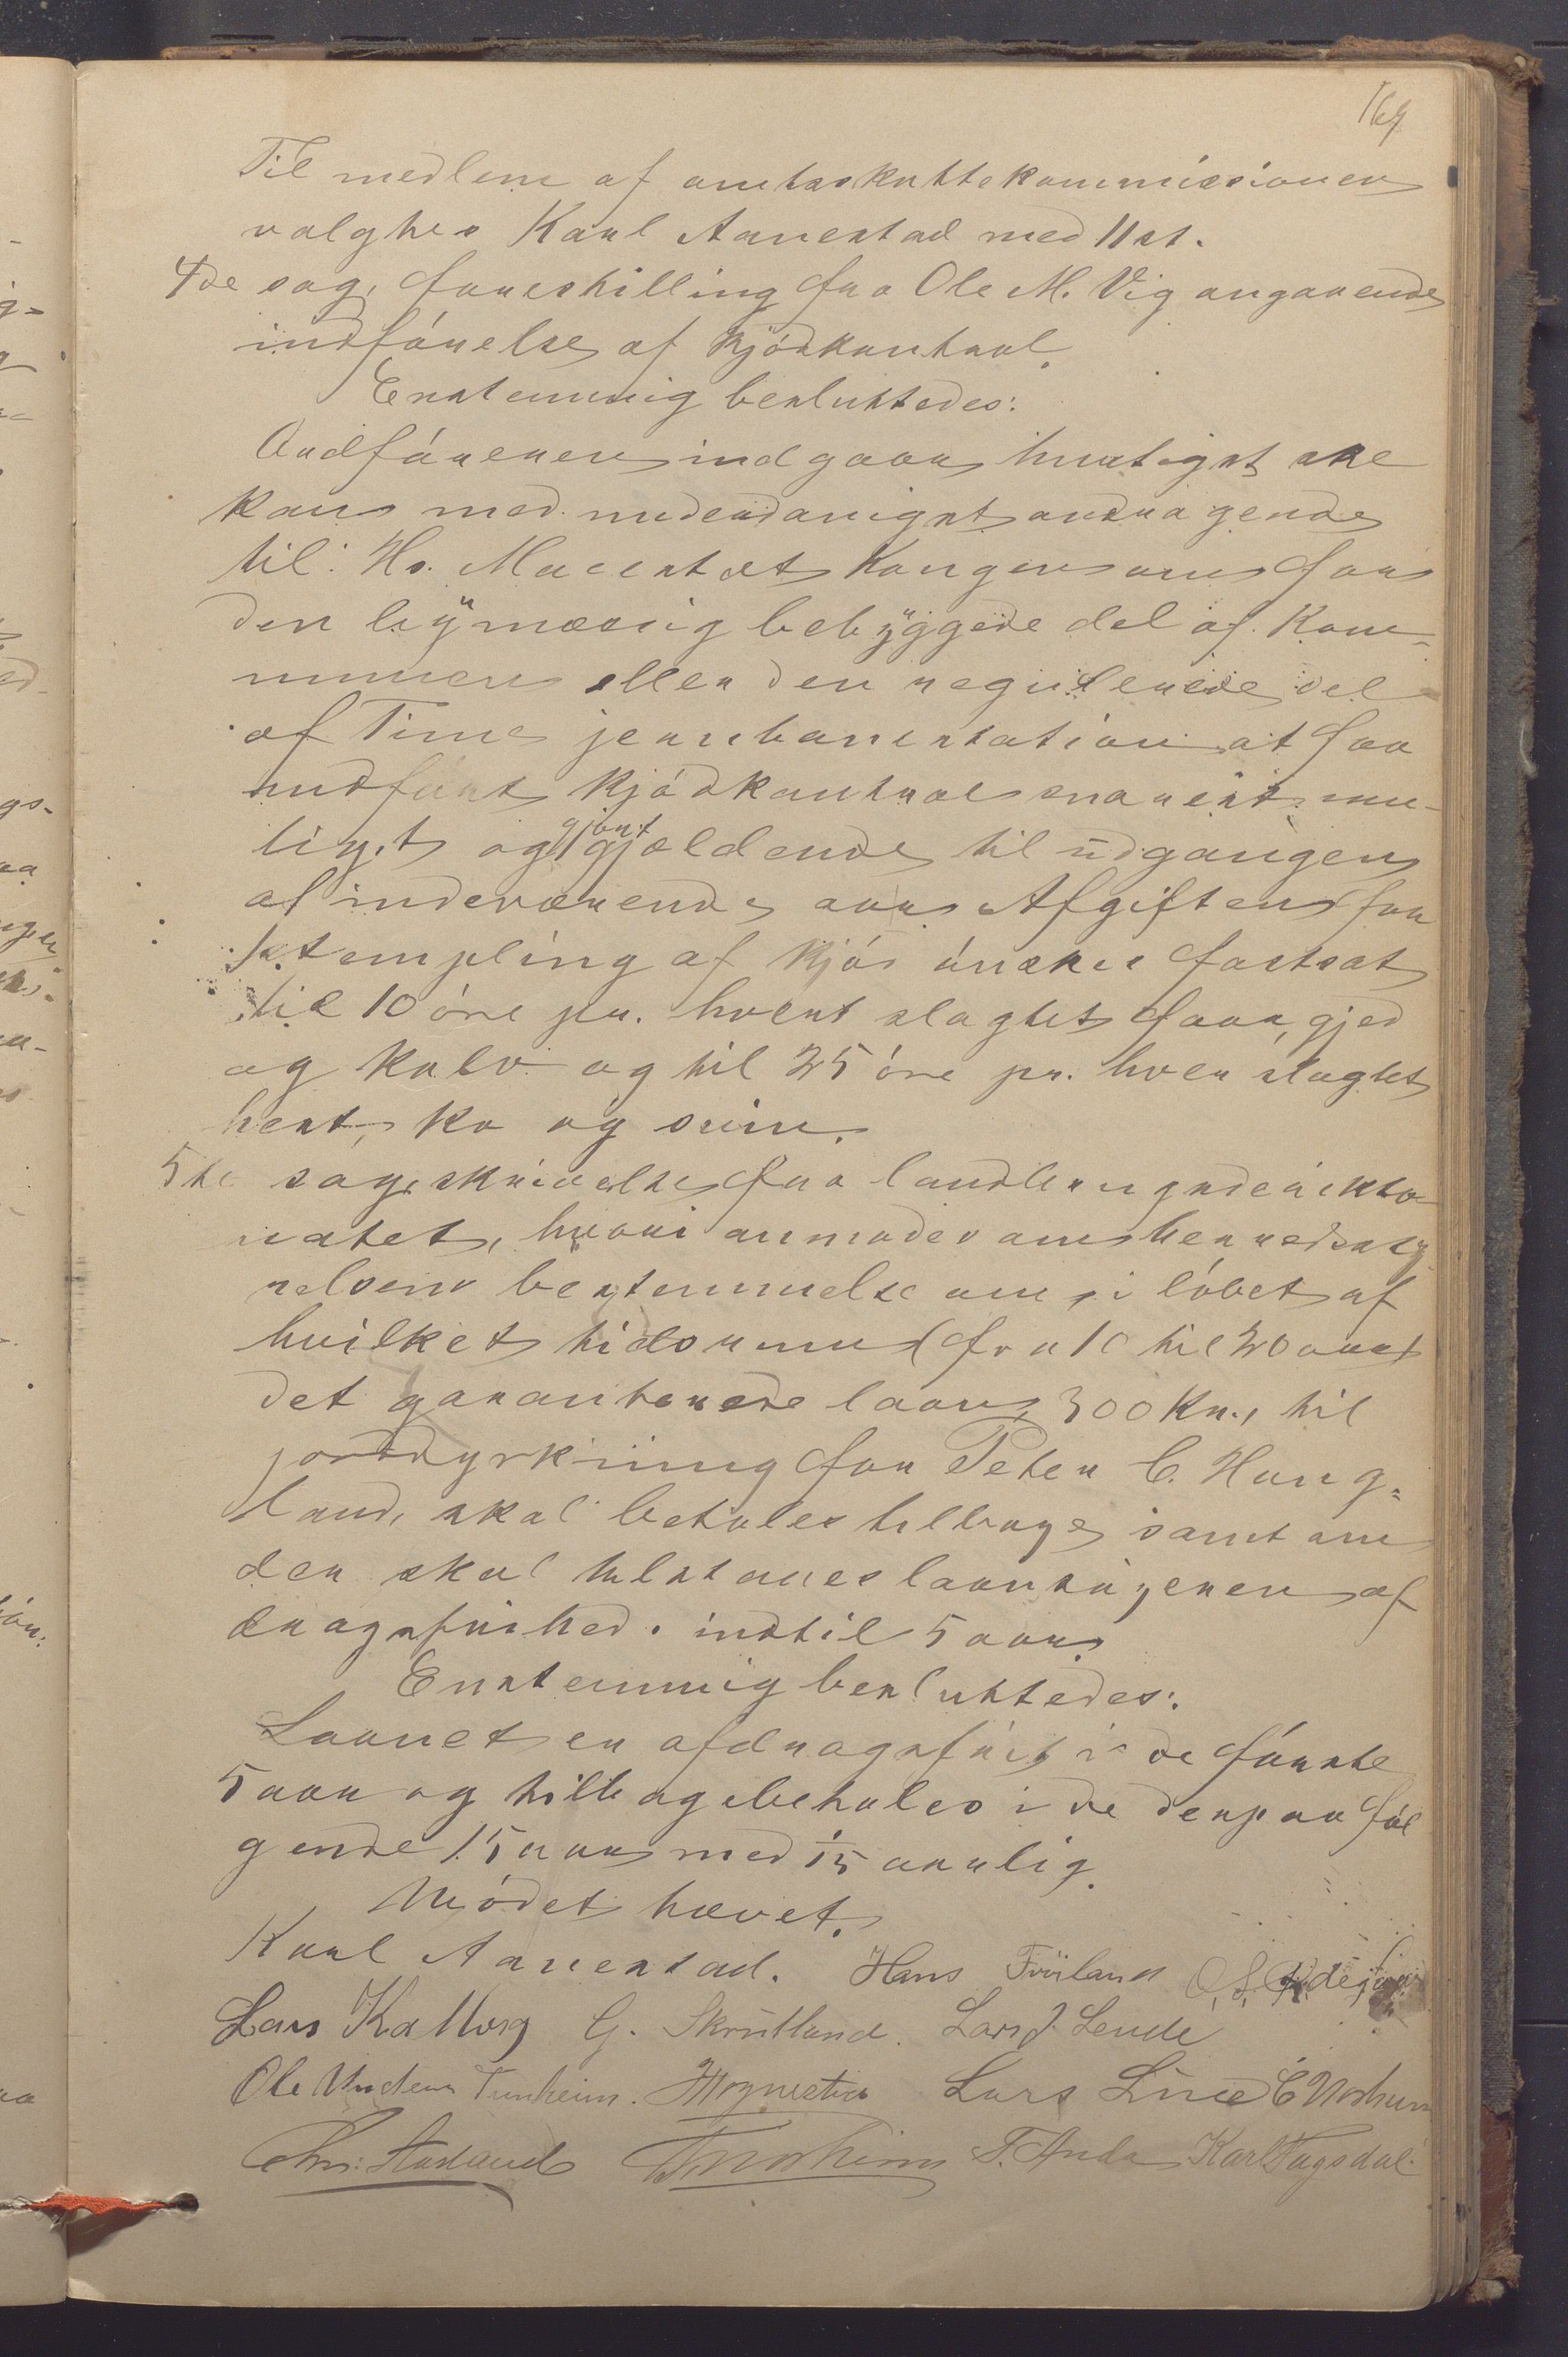 169
Til medlem af amtsskattekommissionen
valghes Karl Aanestad med 11 st.
4de sag, forestilling fra Ole M. Vig angaaende
indförelse af Kjödkontrol.
Enstemmig besluttedes:
Ordföreren indgaar hurtigst ske
kan med underdanigst andragende
til Hs. Maiestæt Kongen om for
den bymæssig bebyggede del af Kom-
munen eller den regulerede del
af Time jernbanestation at faa
indfört Kjödkontrol snarest mu-
ligst og gjort gjældende til udgangen
af indeværende aar. Afgiften for
stempling af Kjöd önskes fastsat
til 10 öre pr. hvert slagtet faar, gjed
og Kalv og til 25 öre pr. hver slagtet
hest, ko og svin.
5te sag, skrivelse fra landbrugsdirekto
ratet, hvori anmodes om herredssty
relsens bestemmelse om, i löbet af
hvilket tidsrum (fra 10 til 20 aar)
det garanterede laan, 300 Kr., til
jorddyrkning for Peter C. Haug=
land, skal betales tilbage samt om
der skal tilstaaes laansögeren af
dragsfrihed indtil 5 aar.
Enstemmig besluttedes:
Laanet er afdragsfrit i de förste
5 aar og tilbagebetales i de derpaa föl
gende 15 aar med 1/15 aarlig.
Mödet hævet.
Karl Aanestad. Hans Fröiland
Lars Kalberg G. Skrudland. Lars J. Lende
Ole Undem Tunheim. Lars Line
T. Anda Karl Fagsdal